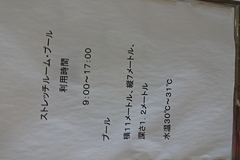 ストレッチルーム・プール
利用時間
9:00～17:00
プール
横11メートル、縦7メートル、
深さ1.2メートル
水温30℃～31℃